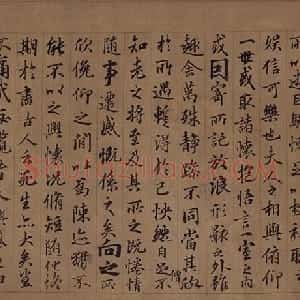 娛信可樂也夫人之相與俯仰
一世或取諸懷抱悟言一室之內
或因寄所託放浪形骸之外雖
趣舍萬殊靜躁不同當其欣
於所遇暫得於己怏然自足不
知老之將至及其所之既惓情
隨事遷感慨係之矣向之所
欣俛仰之閒以為陳迹猶不
能不以之興懷況脩短隨化終
期於盡古人云死生亦大矣豈
不痛哉